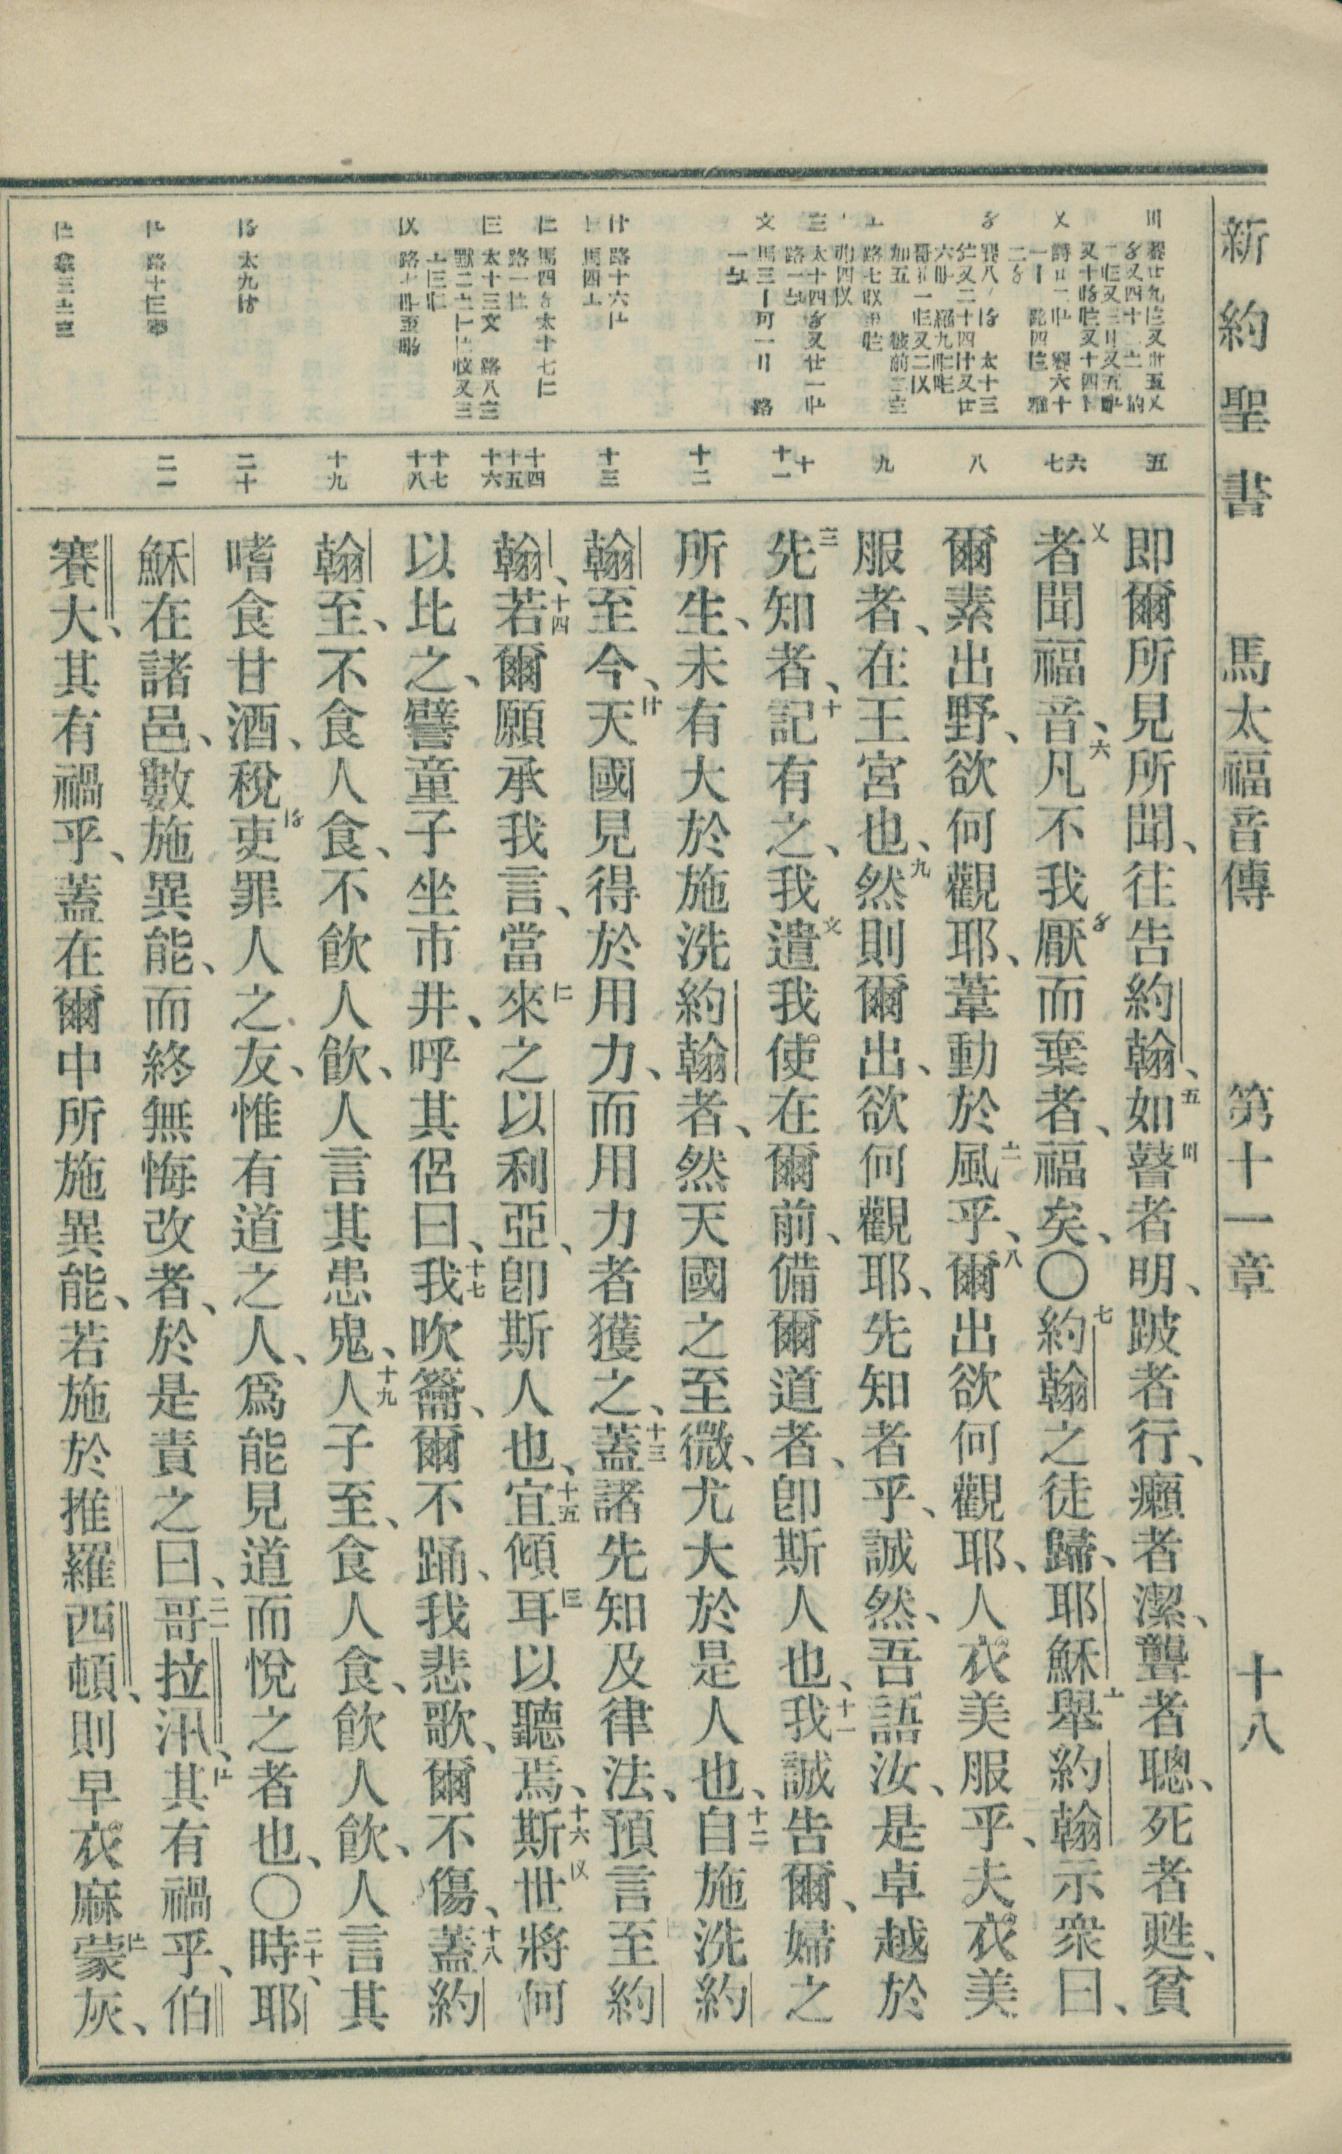 新約聖書 馬太福音傳 第十一章 十八
五
六
七
八
九
十
十一
十二
十三
十四
十五
十六
十七
十八
十九
二十
二一
即爾所見所聞、往告約翰、五如瞽者明、跛者行、癩者潔、聾者聰、死者甦、貧
者聞福音、六凡不我厭而棄者、福矣、〇七約翰之徒歸、耶穌舉約翰示衆曰、
爾素出野、欲何觀耶、葦動於風乎、八爾出欲何觀耶、人衣美服乎、夫衣美
服者、在王宮也、九然則爾出、欲何觀耶、先知者乎、誠然、吾語汝、是卓越於
先知者、十記有之、我遣我使在爾前、備爾道者、卽斯人也、十一我誠告爾、婦之
所生、未有大於施洗約翰者、然天國之至微、尤大於是人也、十二自施洗約
翰至今、天國見得於用力、而用力者獲之、十三蓋諸先知及律法、預言至約
翰、十四若爾願承我言、當來之以利亞、卽斯人也、十五宜傾耳以聽焉、十六斯世將何
以比之、譬童子坐市井、呼其侶曰、十七我吹籥、爾不踊、我悲歌、爾不傷、十八蓋約
翰至、不食人食、不飲人飲、人言其患鬼、十九人子至、食人食、飲人飲、人言其
嗜食甘酒、稅吏罪人之友、惟有道之人、爲能見道而悅之者也、〇二十時、耶
穌在諸邑、數施異能、而終無悔改者、於是責之曰、二一哥拉汛、其有禍乎、伯
賽大、其有禍乎、蓋在爾中所施異能、若施於推羅西頓、則早衣麻蒙灰、